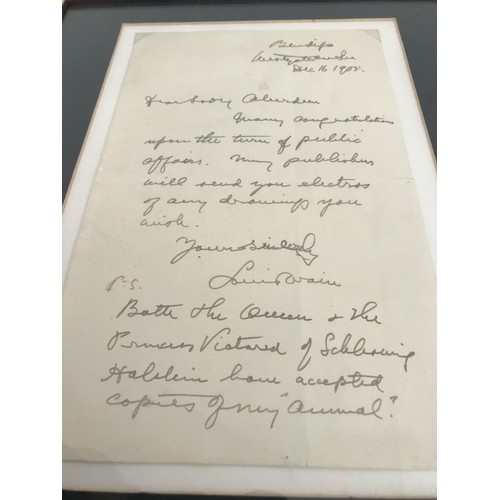 Bendigo
Westgate on Sea
Dec 16 1902.
Dear Lady Aberdeen
Many congratulations
upon the turn of public
affairs. My publishers
will send you electros
of any drawings you
wish.
Yours sincerely
Louis Wain
P.S.
Both the Queen & the
Princess Victoria of Schleswig
Holstein have accepted
copies of my "Annual".